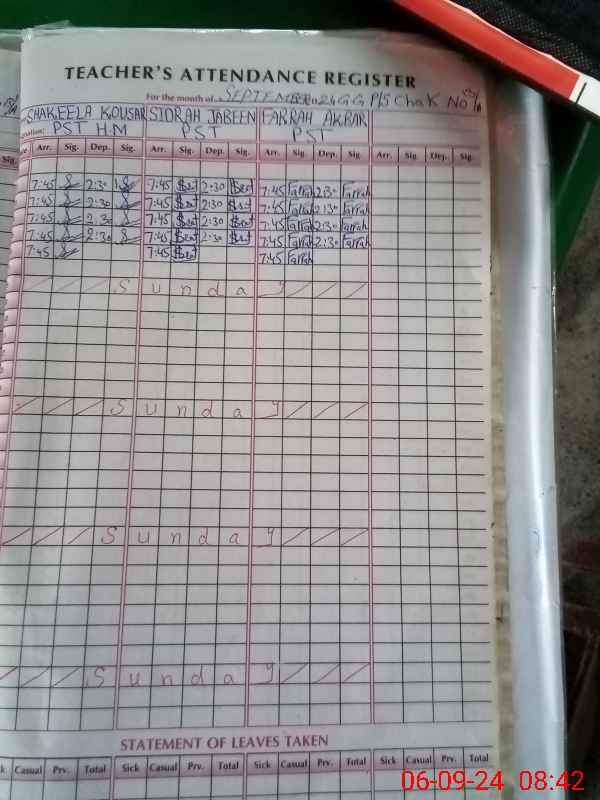 TEACHER'S ATTENDANCE REGISTER
For the month of SEPTEMBER 2024 G.G P/S Chak No
SHAKEELA KOUSAR SIDRAH JABEEN FARRAH AKBAR
PST H.M PST PST
Sig. Arr. Sig. Dep. Sig. Arr. Sig. Dep. Sig. Arr. Sig Dep. Sig. Arr. Sig Dep. Sig.
7:45 2:30 7:45 2:30 7:45 Farrah 2:30 Farrah
7:45 2:30 7:45 2:30 7:45 Farrah 2:30 Farrah
7:45 2:30 7:45 2:30 7:45 Farrah 2:30 Farrah
7:45 2:30 7:45 2:30 7:45 Farrah 2:30 Farrah
7:45 7:45 7:45 Farrah
Sunday
Sunday
Sunday
Sunday
STATEMENT OF LEAVES TAKEN
Sick Casual Prv. Total Sick Casual Prv. Total Sick Casual Prv. Total Sick Casual Prv. Total
06-09-24 08:42